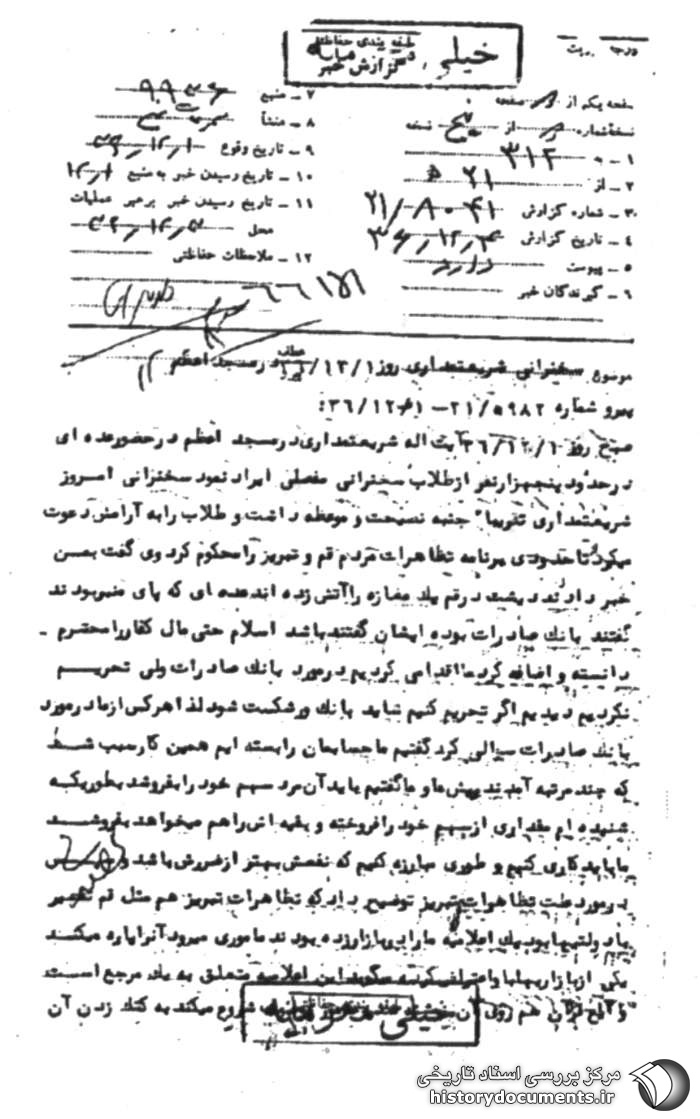 درجه
طبقه بندی حفاظتی
خیلی محرمانه
گزارش خبر
صفحه یکم از صفحه
نسخه شماره از پنج نسخه
۱ - به ۳۱۲
۲ - از ۲۱ ه
۳ - شماره گزارش ۲۱/۸۰۴۱
۴ - تاریخ گزارش ۳۶/۱۲/۴
۵ - پیوست ندارد
۶ - گیرندگان خبر
۷ - منبع ۹۹۳۶
۸ - منشأ
۹ - تاریخ وقوع ۳۶/۱۲/۱
۱۰ - تاریخ رسیدن خبر به منبع ۱۲/۱
۱۱ - تاریخ رسیدن خبر به رهبر عملیات
محل
۱۲ - ملاحظات حفاظتی
موضوع سخنرانی شریعتمداری روز ۱۲/۱ در مسجد اعظم
پیرو شماره ۲۱/۵۹۸۲ - ۳۶/۱۲/۱:
صبح روز ۳۶/۱۲/۱ آیت اله شریعتمداری در مسجد اعظم در حضور عده ای
در حدود پنجهزار نفر از طلاب سخنرانی مفصلی ایراد نمود سخنرانی امروز
شریعتمداری تقریبا" جنبه نصیحت و موعظه داشت و طلاب را به آرامش دعوت
میکرد تا حدودی برنامه تظاهرات مردم قم و تبریز را محکوم کرد وی گفت بمن
خبر دادند دیشب در قم یک مغازه را آتش زده اند عده ای که پای منبر بودند
گفتند بانک صادرات بوده ایشان گفتند باشد اسلام حتی مال کفار را محترم -
دانسته و اضافه کرد ما اقدامی کردیم در مورد بانک صادرات ولی تحریم
نکردیم دیدیم اگر تحریم کنیم شاید بانک ورشکست شود لذا هر کس از ما در مورد
بانک صادرات سئوالی کرد گفتیم ما حسابمان را بسته ایم همین کار سبب شد
که چند مرتبه آمدند پیش ما و ما گفتیم باید آن مرد سهم خود را بفروشد بطوریکه
شنیده ام مقداری از سهم خود را فروخته و بقیه اش را هم میخواهد بفروشد
ما باید کاری کنیم و طوری مبارزه کنیم که نفعش بهتر از ضررش باشد
در مورد علت تظاهرات تبریز توضیح داد که تظاهرات تبریز هم مثل قم تقصیر
با دولتیها بود یک اعلامیه ما را به بازار زده بودند ماموری میرود آنرا پاره میکند
یکی از بازاریها با و اعتراض کرده میگوید این اعلامیه متعلق به یک مرجع است
قرآن هم روی آن شروع میکند به کتک زدن آن
خیلی محرمانه
مرکز بررسی اسناد تاریخی
historydocuments.ir